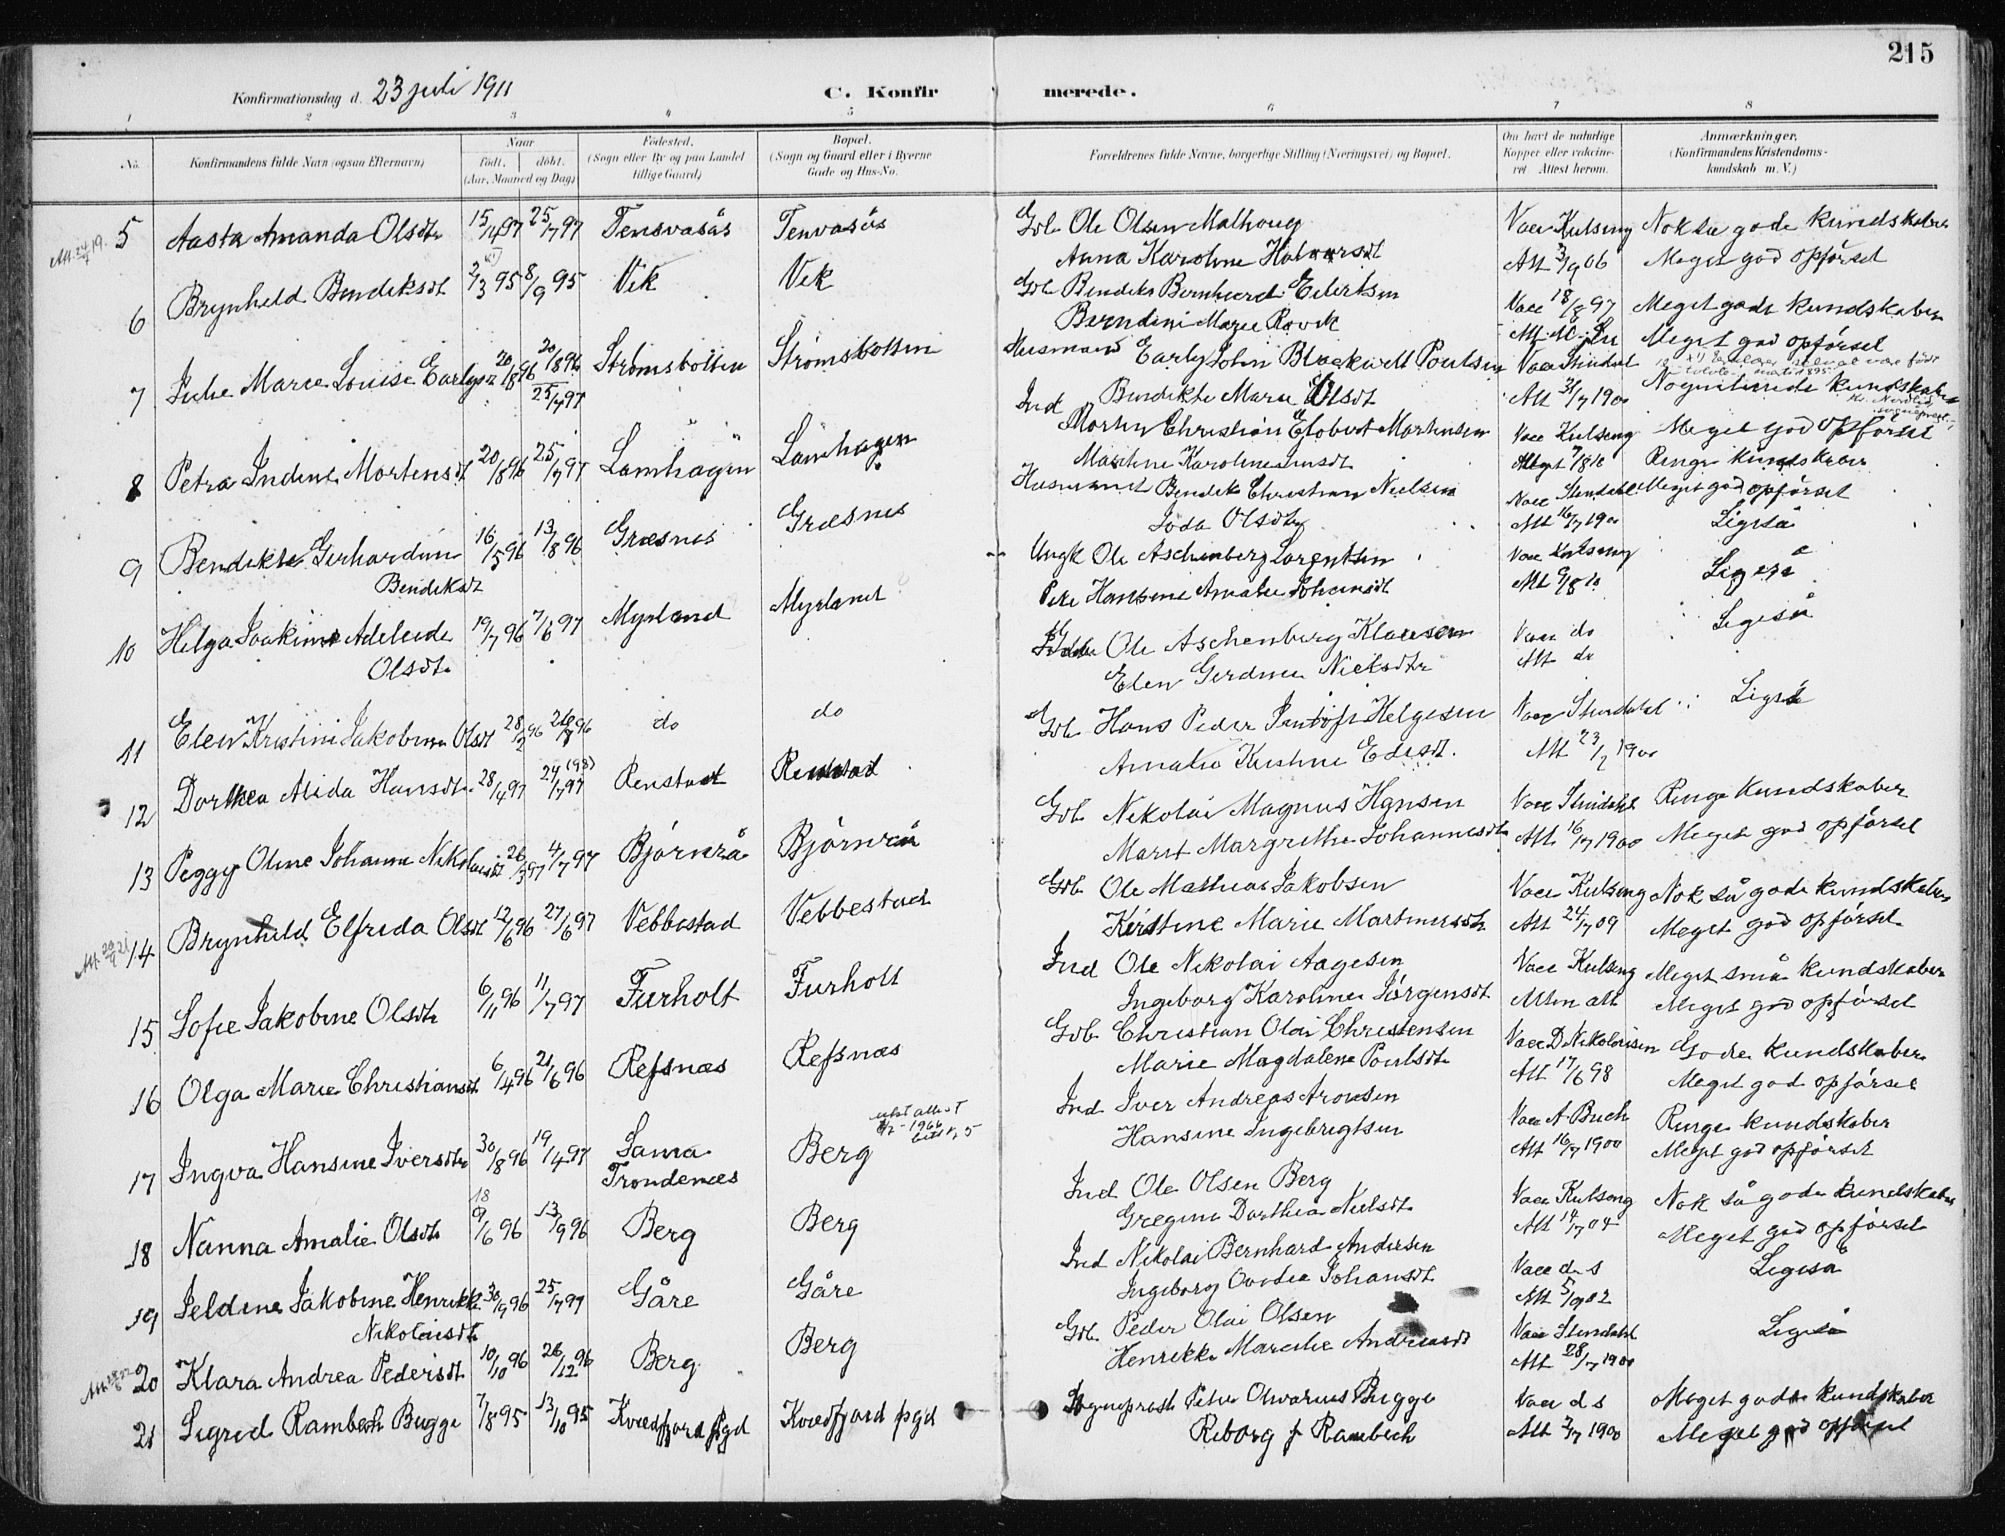 215
Konfirmationsdag d. 23 juli 1911
C. Konfirmerede.
1 2 3 4 5 6 7 8
No.
Konfirmandens fulde Navn (ogsaa Efternavn)
Naar
født. døbt.
(Aar, Maaned og Dag)
Fødested.
(Sogn eller By og paa Landet
tillige Gaard)
Bopæl.
(Sogn og Gaard eller i Byerne
Gade og Hus-No.
Forældrenes fulde Navne, borgerlige Stilling (Næringsvei) og Bopæl.
Om havt de naturlige
Kopper eller vakcine-
ret Attest herom.
Anmærkninger,
(Konfirmandens Kristendoms-
kundskab m. V.)
5 Aasta Amanda Olsdtr 15/4 97 25/7 97 Tensvasås Tenvasås Gdb. Ole Olsen Malhoug Vacc Kulseng Nok så gode kundskaber
Anna Karoline Halvorsdt Att 3/9 06 Meget god opførsel
6 Brynhild Bendiksdt 2/3 95 8/9 95 Vik Vik Gdb Bendiks Bernhard Eilertsen Vacc 18/8 97 Meget gode kundskaber
Berndini Marie Rovik Meget god opførsel
7 Julie Marie Louise Earlys 20/8 96 20/8 96 25/7 97 Strømsbotten Strømsbotten Husmand Early John Blackwell Poulsen Vacc Stendal
Bendikte Marie Olsdt Att 1900 kundskaber
8 Petra Indine Mortensdt 20/8 96 25/7 97 Lamhagen Lamhagen Ind Morten Christian Elobert Mortensen Vacc Kulseng Meget god opførsel
Martine Karoline Attest 9/8 10 Ringe kundskaber
9 Bendikte Gerhardine 16/5 96 13/8 96 Græsnes Græsnes Husmand Bendik Christian Nielsen Vacc Stendahl Meget god opførsel
Bendiksdt Joda Olsdtr Att 16/7 1900 Ligeså
10 Helga Joakime Adeleide 19/7 96 7/6 97 Myrland Myrland Ungk Ole Aschenberg Lorentsen Vacc Kulseng Ligeså
Olsdtr Pike Hansine Amalie Johansdt Att 9/8 10
11 Elen Kristine Jakobine Olsdt 28/2 96 96 do do Ole Aschenberg Klausen Vacc do Ligeså
Elen Gerdine Nielsdtr Att do
12 Dorthea Alida Hansdtr 28/4 97 24/7 97 (98) Renstad Renstad Gdb. Hans Peder Helgesen Vacc Stendahl Ligeså
Amalie Kristine Att 23/2 1900
13 Peggy Oline Johanna Nikolaisdt 26/3 97 4/7 97 Bjørnrå Bjørnrå Gdb Nikolai Magnus Hansen Vacc Stendahl Ringe kundskaber
Marit Margrethe Johannesdtr Att 16/7 1900 Meget god opførsel
14 Brynhild Elfrida Olsdt 12/6 96 27/6 97 Vebbestad Vebbestad Gdb. Ole Mathias Jakobsen Vacc Kulseng Nok så gode kundskaber
Kirstine Marie Martinusdtr Att 24/7 09 Meget god opførsel
15 Sofie Jakobine Olsdtr 6/11 96 11/7 97 Furholt Furholt Ind Ole Nikolai Aagesen Vacc Kulseng Meget små kundskaber
Ingeborg Karoline Jörgensdt Uten att Meget god opførsel
16 Olga Marie Christiansdt 6/4 96 21/6 96 Refsnæs Refsnæs Gdb. Christian Olai Christensen Vacc D. Nikolaisen Gode kundskaber
Marie Magdalene Poulsdtr Att 17/6 98 Meget god opførsel
utst attest
1966
17 Ingva Hansine Iversdtr 30/8 96 19/4 97 Sama Berg Ind Iver Andreas Aronsen Vacc A. Buch Ringe kundskaber
Trondenæs Hansine Ingebregtsen Att 16/7 1900 Meget god opførsel
18 Nanna Amalie Olsdtr 18 9/6 96 13/9 96 Berg Berg Ind Ole Olsen Berg Vacc Kulseng Nok så gode kundskaber
Gregine Dorthea Nielsdtr Att 14/7 04 Meget god opførsel
19 Jeldine Jakobine Henrikke 30/9 96 25/7 97 Gåre Gåre Ind Nikolai Bernhard Andersen Vacc d s Ligeså
Nikolaisdtr Ingeborg Ovidie Johansdt Att 5/9 02
20 Klara Andrea Pedersdt 10/10 96 26/12 96 Berg Berg Gdb. Peder Olai Olsen Vacc Stendahl Ligeså
Henrikke Marelie Andreasdt Att 28/7 1900
21 Sigrid Rambech Bugge 7/8 95 13/10 95 Kvædfjord pgd Kvædfjord pgd Sogneprest Peter Olivarius Bugge Vacc d s Meget gode kundskaber
Riborg f. Rambech Att 2/7 1900 Meget god opførsel